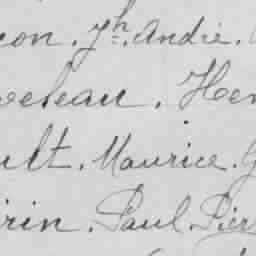 con. Jh. André.
eceleau. Hen
ult. Maurice. G
rin. Paul. Pier